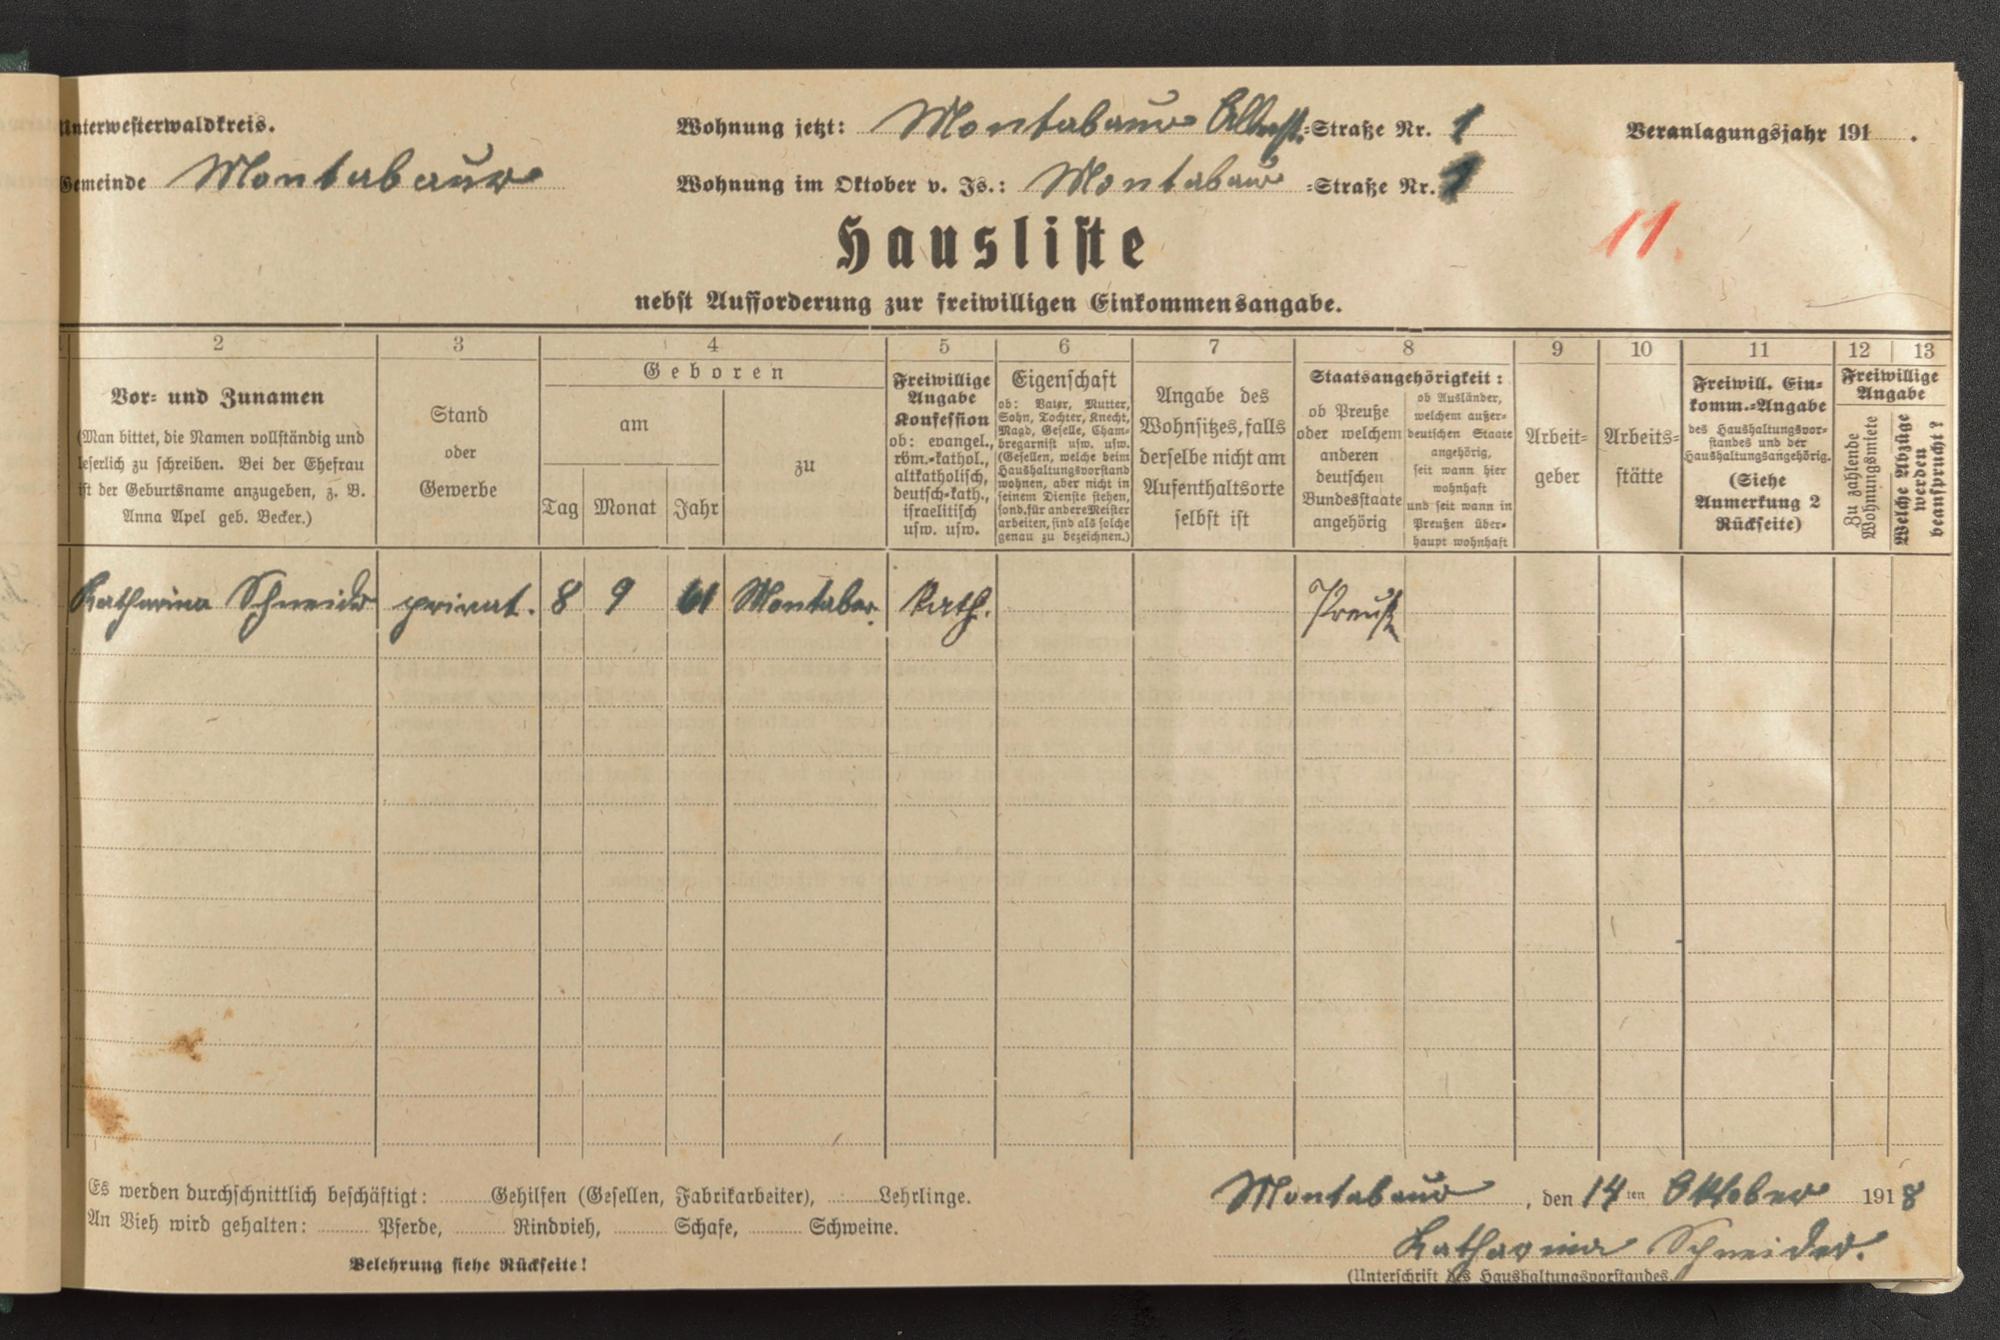 Unterwesterwaldkreis.
Gemeinde Montabaur
Wohnung jetzt: Montabaur -Straße Nr. 1
Wohnung im Oktober v. Js.: Montabaur -Straße Nr. 1
Veranlagungsjahr 191 .
11.
Hausliste
nebst Aufforderung zur freiwilligen Einkommensangabe.
2 3 4 5 6 7 8 9 10 11 12 13
Vor- und Zunamen
(Man bittet, die Namen vollständig und
leserlich zu schreiben. Bei der Ehefrau
ist der Geburtsname anzugeben, z. B.
Anna Apel geb. Becker.)
Stand
oder
Gewerbe
Geboren
am
Tag Monat Jahr
zu
Freiwillige
Angabe
Konfession
ob: evangel.,
röm.-kathol.,
altkatholisch,
deutsch-kath.,
israelitisch
usw. usw.
Eigenschaft
ob: Vater, Mutter,
Sohn, Tochter, Knecht,
Magd, Geselle, Cham-
bregarnist usw. usw.
(Gesellen, welche beim
Haushaltungsvorstand
wohnen, aber nicht in
seinem Dienste stehen,
sond. für andere Meister
arbeiten, sind als solche
genau zu bezeichnen.)
Angabe des
Wohnsitzes, falls
derselbe nicht am
Aufenthaltsorte
selbst ist
Staatsangehörigkeit:
ob Preuße
oder welchem
anderen
deutschen
Bundesstaate
angehörig
ob Ausländer,
welchem außer-
deutschen Staate
angehörig,
seit wann hier
wohnhaft
und seit wann in
Preußen über-
haupt wohnhaft
Arbeit-
geber
Arbeits-
stätte
Freiwill. Ein-
komm.-Angabe
des Haushaltungsvor-
standes und der
Haushaltungsangehörig.
(Siehe
Anmerkung 2
Rückseite)
Freiwillige
Angabe
Zu zahlende
Wohnungsmiete
Welche Abzüge
werden
beansprucht?
Katharina Schneider privat. 8 9 61 Montabar. Kath. Preuß
Es werden durchschnittlich beschäftigt: Gehilfen (Gesellen, Fabrikarbeiter), Lehrlinge.
An Vieh wird gehalten: Pferde, Rindvieh, Schafe, Schweine.
Belehrung siehe Rückseite!
Montabaur, den 14ten Oktober 1918
Katharina Schneider.
(Unterschrift des Haushaltungsvorstandes.